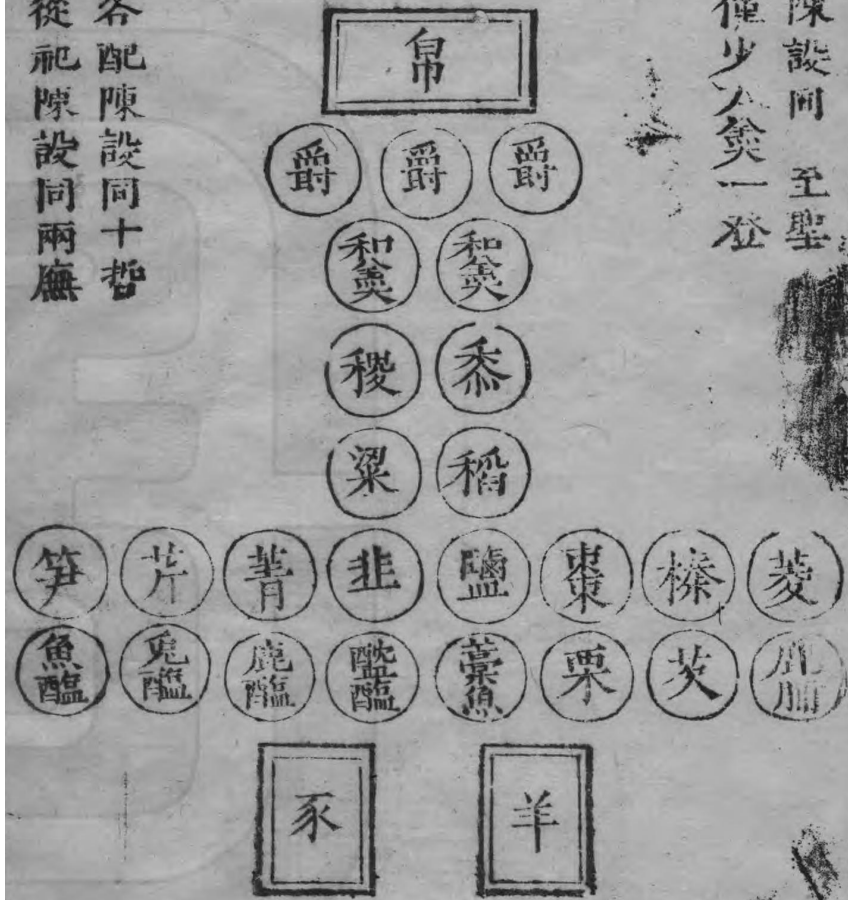 陳設同 至聖
僅少大羹一登
帛
爵 爵 爵
和羹 和羹
黍 稷
稻 粱
菱 榛 棗 鹽 韭 菁 芹 笋
鹿脯 芡 栗 藁魚 醓醢 鹿醢 兎醢 魚醢
羊 豕
各配陳設同十哲
從祀陳設同兩廡